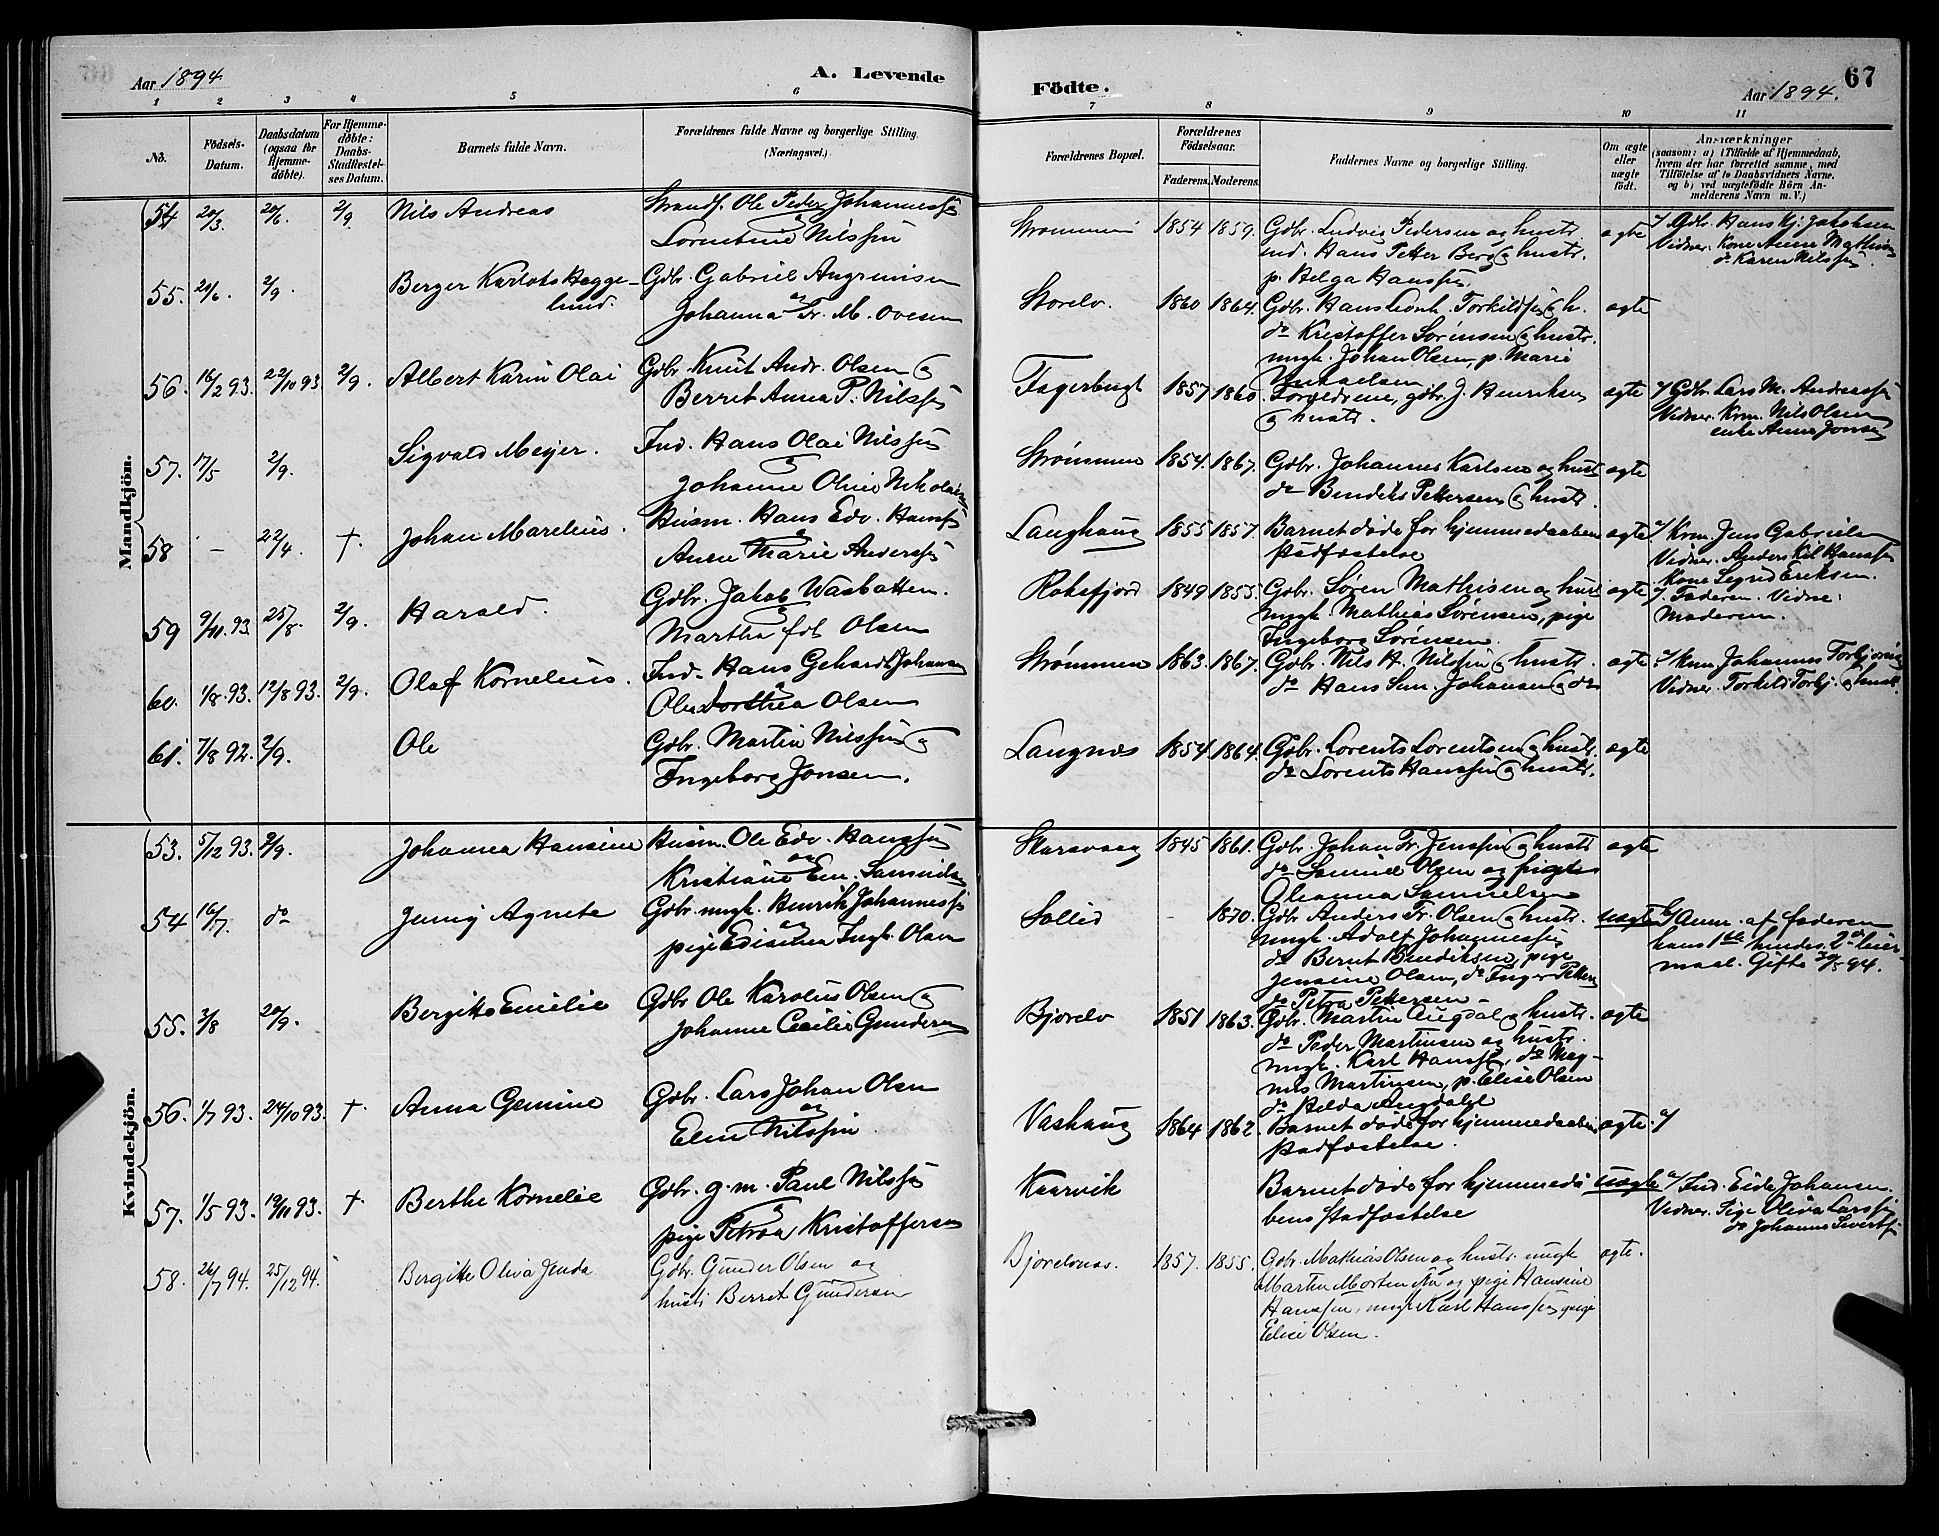 Aar 1894
A. Levende
Födte.
Aar 1894.
67
1 2 3 4 5 6 7 8 9 10 11
No.
Födsels-
Datum.
Daabsdatum
(ogsaa for
Hjemme-
döbte).
For Hjemme-
döbte:
Daabs-
Stadfestel-
ses Datum.
Barnets fulde Navn.
Forældrenes fulde Navne og borgerlige Stilling.
(Næringsvei.)
Forældrenes Bopæl.
Forældrenes
Födselsaar.
Faderens. Moderens.
Faddernes Navne og borgerlige Stilling.
Om ægte
eller
uægte
födt.
Anmærkninger
(saasom: a) i Tilfælde af Hjemmedaab,
hvem der har forrettet samme, med
Tilföielse af to Daabsvidners Navne,
og b) ved uægtefödte Börn An-
melderens Navn m. V.)
Mandkjön.
54 20/3. 20/6. 2/9 Nils Andreas
Strands. Ole Peder Johannessen
og
Lorentine Nilssen
Strømmen 1854 1859.
Gdbr. Ludvig Pedersen og hustr.
ind. Hans Petter Berg og hustr.
p. Helga Hanssen.
ægte
Gdbr. Hans Kj. Jakobsen
Vidner. Kone Anne Mathisen
do Karen Nilssen.
55. 2/9. Berger Karlots Hagge-
lund
Gdbr. Gabriel Angrimsen
og
Johanna Fr. M. Ovesen
Storelv. 1860 1864.
Gdbr. Hans Leonh. Torkildsen og h.
do Kristoffer Sørensen og hustr.
ungk. Johan Olsen, p. Marie
ægte
56. 16/2 93. 22/10 93 2/9. Albert Karin Olai
Gdbr. Knut Andr. Olsen og
Berret Anna P. Nilssen
Fagerbugt 1857 1860.
Forældrene, gdbr. J. Henriksen
og hustr.
ægte
Gdbr. Lars M. Anderssen
Vidner. Krm. Nils Olsen
enke Anne Jonsen
57. 17/5 2/9. Sigvald Meyer.
Ind. Hans Olai Nilssen
og
Johanne Oline Nikolaisen
Strømmen 1854. 1867.
Gdbr. Johannes Karlsen og hust
do Bendiks Pettersen og hustr.
ægte
58 – 22/4. † Johan Marelius.
Husm. Hans Edv. Hanssen
og
Anne Marie Anderssen
Langhaug 1855 1857.
Barnet døde før hjemmedaabens
stadfæstelse
ægte
Krm. Jens Gabrielsen
Vidner. Anders Kil Hanssen
Kone Sigrid Eriksen.
59 9/11. 93. 25/8. 2/9. Harald.
Gdbr. Jakob Wasbotten.
og
Martha fdt Olsen
Rotsfjord 1849 1855.
Gdbr. Søren Mathisen og hust
ungk. Mathias Sørensen, pige
Ingeborg Sørensen.
ægte
Faderen. Vidne:
Moderen.
60. 1/8. 93. 12/8 93. 2/9. Olaf Kornelius.
Ind. Hans Gehardt Johansen
og
Oline Dorthea Olsen
Strømmen 1863. 1867.
Gdbr. Nils A. Nilssen og hustr.
do Hans Sim. Johansen og do
ægte
Krm Johannes Torbjørnsen
Vidner. Torkild Torbj. og hust.
61. 7/8 92. 2/9. Ole
Gdbr. Martin Nilssen og
Ingeborg Jonsen.
Langnes 1854. 1864.
Gdbr. Lorents Lorentsen og hustr.
do Lorents Hanssen og hustr.
ægte
Kvindekjön.
53. 5/12 93. 2/9. Johanna Hansine
Husm. Ole Edv. Hanssen
og
Kristiane Em. Samuelsen
Skarsvaag 1845 1861.
Gdbr. Johan Fr. Jenssen og hustr
do Samuel Olsen og pigen
Oleanna Samuelsen
ægte
54 16/7. do Jenny Agneta
Gdbr. ungk. Henrik Johannessen
og
pige Edianna Ingb. Olsen
Sollid – 1870.
Gdbr. Anders Fr. Olsen og hustr.
ungk. Adolf Johannessen
do Bernt Bendiksen, pige
Jensine Olsen, do Inger Petters
do Petra Pettersen –
uægte
b/ Anm. af faderen
hans 1ste hendes 2det leier-
maal. Gifte 94.
55. 3/8 20/9. Bergitte Emilie
Gdbr Ole Karolius Olsen og
Johanne Cecilie Gundersen
Bjørelv 1851 1863.
Gdbr. Martin Augdal og hustr.
do Peder Martinsen og hustr.
ungk. Karl Hanssen, do Mag-
nus Martinsen, p. Elise Olsen
do Hilda Augdahl
ægte
56. 1/7 93. 24/10 93. † Anna Gemine
Gdbr. Lars Johan Olsen
og
Elen Nilssen
Vashaug 1864 1862.
Barnet døde før hjemmedaabens
stadfæstelse.
ægte. a/
57. 1/5 93. 19/11 93. † Berthe Kornelie
Gdbr. g. m. Paul Nilssen
og
pige Petrea Kristoffersen
Kaarvik
Barnet døde før hjemmedå
bens stadfæstelse
uægte
a/ Ind. Eide Johansen.
Vidner. Pige Oliva Larssen
do Johanne Sivertsen
58. 26/7 94. 25/12 94. Bergitte Oliva Jenda
Gdbr. Gunder Olsen og
hustr Berret Gundersen
Bjørelvnes. 1857. 1855.
Gdbr. Mathias Olsen og hustr. ungk
Martin Mortensen og pige Hansine
Hanssen, ungk Karl Hanssen, pige
Elise Olsen.
ægte.